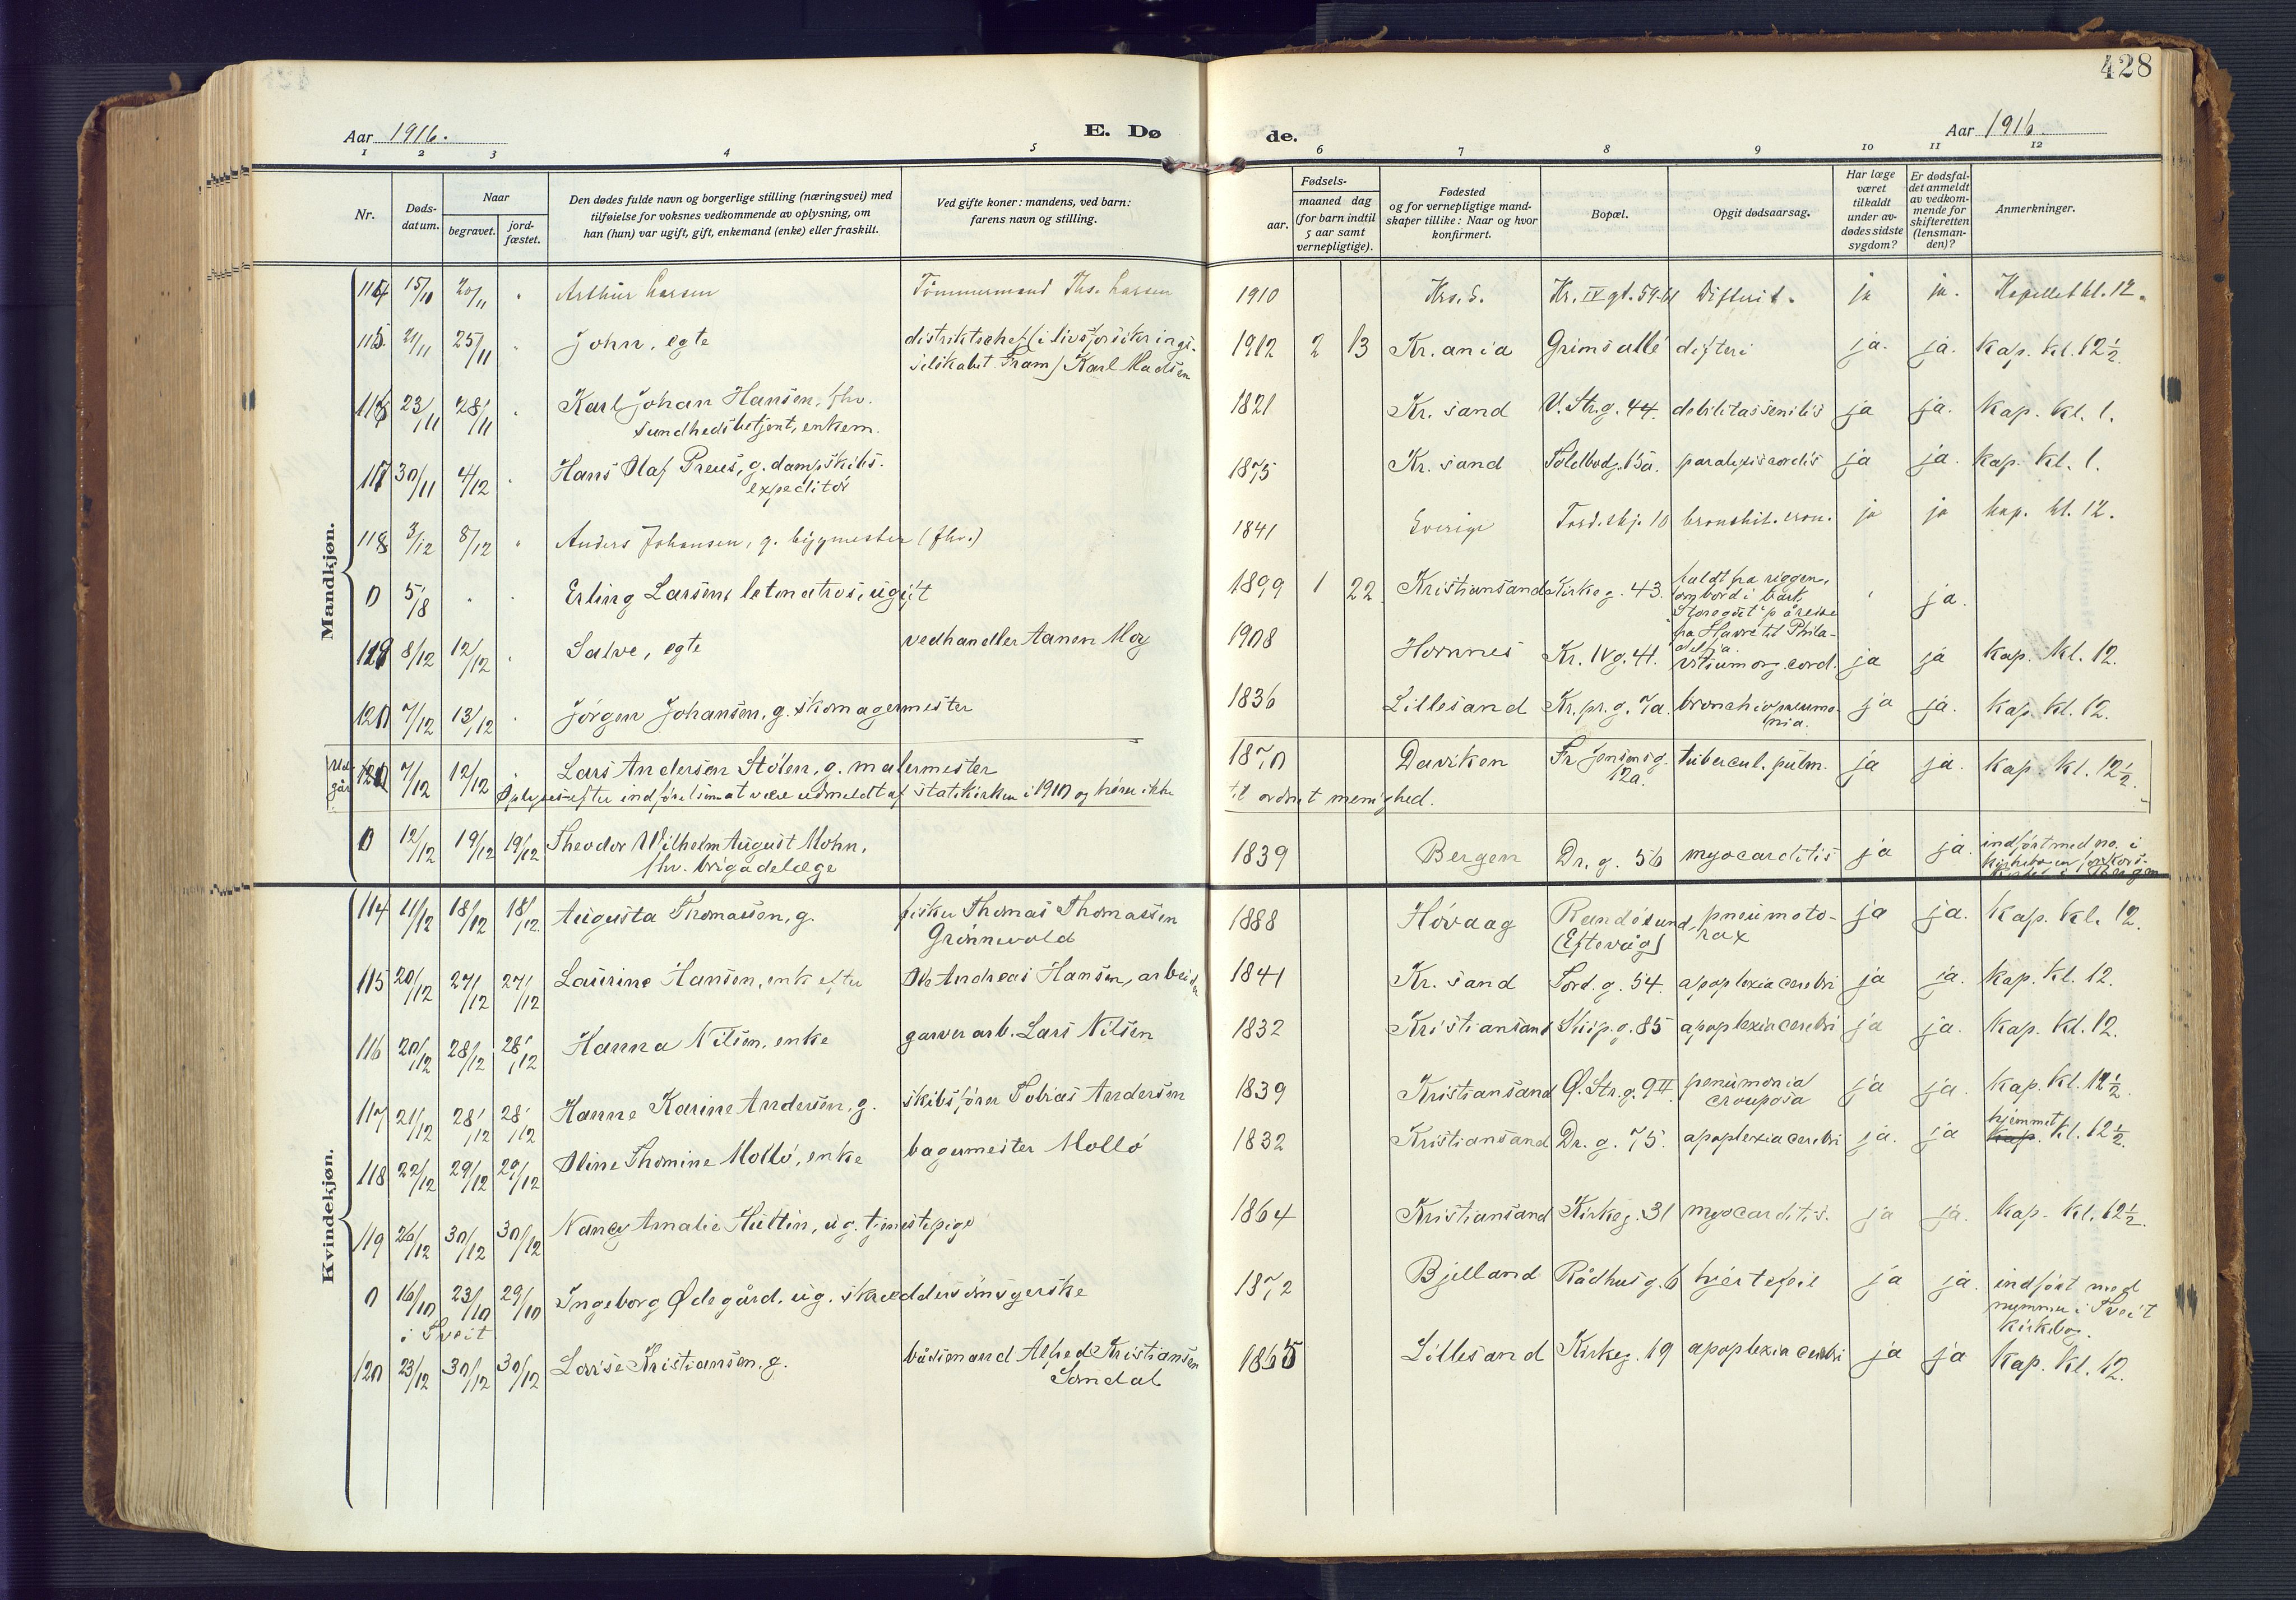 428
Aar 1916.
E. Dø
de.
Aar 1916.
1 2 3 4 5 6 7 8 9 10 11 12
Nr.
Døds-
datum.
Naar
begravet.
jord-
fæstet.
Den dødes fulde navn og borgerlige stilling (næringsvei) med
tilføielse for voksnes vedkommende av oplysning, om
han (hun) var ugift, gift, enkemand (enke) eller fraskilt.
Ved gifte koner: mandens, ved barn:
farens navn og stilling.
Fødsels-
aar.
maaned dag
(for barn indtil
5 aar samt
vernepligtige).
Fødested
og for vernepligtige mand-
skaper tillike: Naar og hvor
konfirmert.
Bopæl.
Opgit dødsaarsag.
Har læge
været
tilkaldt
under av-
dødes sidste
sygdom?
Er dødsfal-
det anmeldt
av vedkom-
mende for
skifteretten
(lensman-
den)?
Anmerkninger.
Mandkjøn.
114 15/11 20/11 " Arthur Larsen Tømmermand Ths. Larsen 1910 Krs. S. Kr. IV gt. 59-61 Difterit. ja ja. Kapellet kl. 12.
115. 21/11 25/11 " John, egte distriktschef (i livsforsikrings- 1912 2 13 Kr.ania Grims allé difteri ja. ja. Kap. kl. 12½.
selskabet Fram) Karl Madsen
116 23/11 28/11 " Karl Johan Hansen, fhv. 1821 Kr. sand V. Str.g. 44. debilitas senilis ja ja. Kap. kl. 1.
sundhedsbetjent, enkem.
117 30/11 4/12 " Hans Olaf Preus, g. dampskibs- 1875 Kr. sand Toldbodg. 15a. paralysis cordis ja ja. Kap. kl. 1.
expeditør
118 3/12 8/12 " Anders Johansen, g. bygmester (fhv.) 1841 Sverige Tord.skj. 10 bronchit. cron. ja ja kap. kl. 12.
0 5/8 " " Erling Larsen, letmatros, ugift 1899 1 22 Kristiansand Kirkeg. 43. faldt fra riggen, " ja.
ombord i bark
Storegut på reise
fra Havre til Phila-
delfia.
119 8/12 12/12 " Salve, egte vedhandler Aanen Moy 1908 Hornnes Kr. IV g. 41. vitium org. cord. ja ja Kap. kl. 12.
120 7/12 13/12 " Jörgen Johansen, g. skomagermester 1836 Lillesand Kr. pr. g. 7a. bronchiopneumo- ja ja. Kap. kl. 12.
nia.
Ud-
går 7/12 12/12 " Lars Andersen Stölen, g. malermester 1870 Daviken Fr Jensensg. tubercul. pulm. ja ja. Kap. kl. 12½.
12a.
Oplyses efter indførelsen at være udmeldt af statskirken i 1910 og hörer ikke til ordnet menighed.
0 12/12 19/12 19/12 Theodor Wilhelm August Mohn, 1839 Bergen Dr. g. 56 myocarditis ja ja. indført med no. i
fhv. brigadelæge
Kvindekjøn.
114 11/12 18/12 18/12 Augusta Thomassen, g. fisker Thomas Thomassen 1888 Hövaag Randösund, pneumoto- ja ja. Kap. kl. 12.
Grönnevold (Eftevåg) rax
115 20/12 27/12 27/12 Laurine Hansen, enke efter Ole Andreas Hansen, arbeider 1841 Kr. sand Tord. g. 54. apoplexia cerebri ja ja. Kap. kl. 12.
116 20/12 28/12 28/12 Hanna Nilsen, enke garverarb. Lars Nilsen 1832 Kristiansand Skip. g. 85 apoplexia cerebri ja ja. Kap. kl. 12.
117 21/12 28/12 28/12 Hanne Karine Andersen, g. skibsfører Tobias Andersen 1839 Kristiansand Ø. Str. g. 9 II. penumonia ja ja. Kap. kl. 12½.
crouposa
118 22/12 29/12 29/12 Oline Thomine Mollö, enke bagermester Mollö 1832 Kristiansand Dr. g. 75. apoplexia cerebri ja. ja hjemmet
Kap. kl. 12½.
119 26/12 30/12 30/12 Nancy Amalie Hultin, ug. tjenestepige 1864 Kristiansand Kirkeg. 31 myocarditis. ja ja. Kap. kl. 12½.
0 16/10 23/10 29/10 Ingeborg Ødegård, ug. skræddersömsyerske 1872 Bjelland Rådhusg. 6 hjertefeil ja ja. indført med
i Tveit nummer i Tveit
kirkebog.
120 23/12 30/12 30/12 Lovise Kristiansen, g. bådsmand Alfred Kristiansen 1865 Lillesand Kirkeg. 19 apoplexia cerebri ja ja Kap. kl. 12.
Somdal